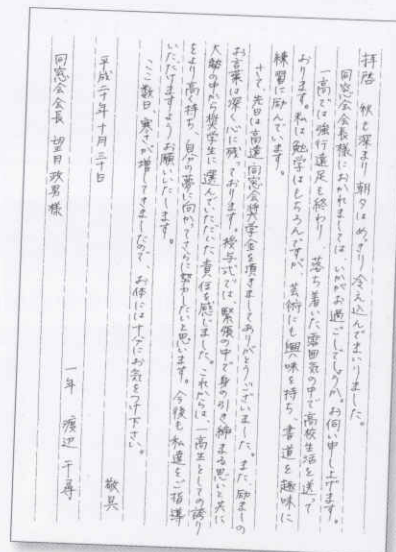 拝啓 秋も深まり朝夕はめっきり冷え込んでまいりました。
同窓会会長様におかれましては、いかがお過ごしでしょうか。お伺い申し上げます。
一高では強行遠足も終わり、落ち着いた雰囲気の中で高校生活を送って
おります。私は勉学はもちろんですが、芸術にも興味を持ち、書道を趣味に
練習に励んでいます。
さて、先日は高遠同窓会奨学金を頂きましてありがとうございました。また、励ましの
お言葉は深く心に残っております。授与式では、緊張の中で身の引き締まる思いと共に
大勢の中から奨学生に選んでいただいた責任を感じました。これからは一高生としての誇り
をより高く持ち、自分の夢に向かってさらに努力したいと思います。今後も私達をご指導
いただけますようお願いいたします。
ここ数日、寒さが増してきましたので、お体には十分にお気をつけ下さい。
敬具
平成二十年十月三十日
一年 渡辺 千尋
同窓会会長 望月政男様